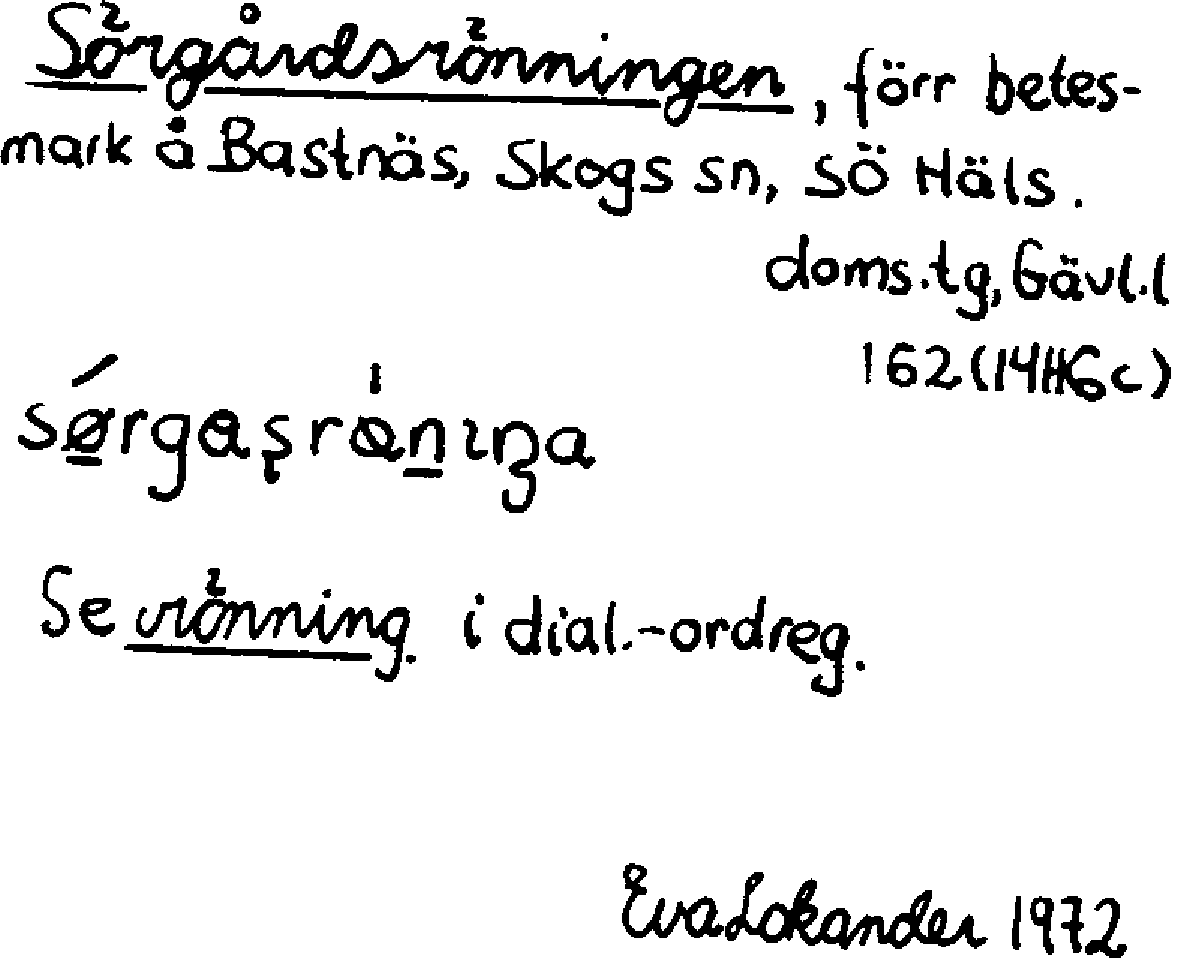 Sörgårdsrönningen, förr betes-
mark å Bastnäs, Skogs sn, SÖ Häls.
doms.tg, Gävl.l
162 (14H6c)
Se rönning i dial.-ordreg.
Eva Lokander 1972